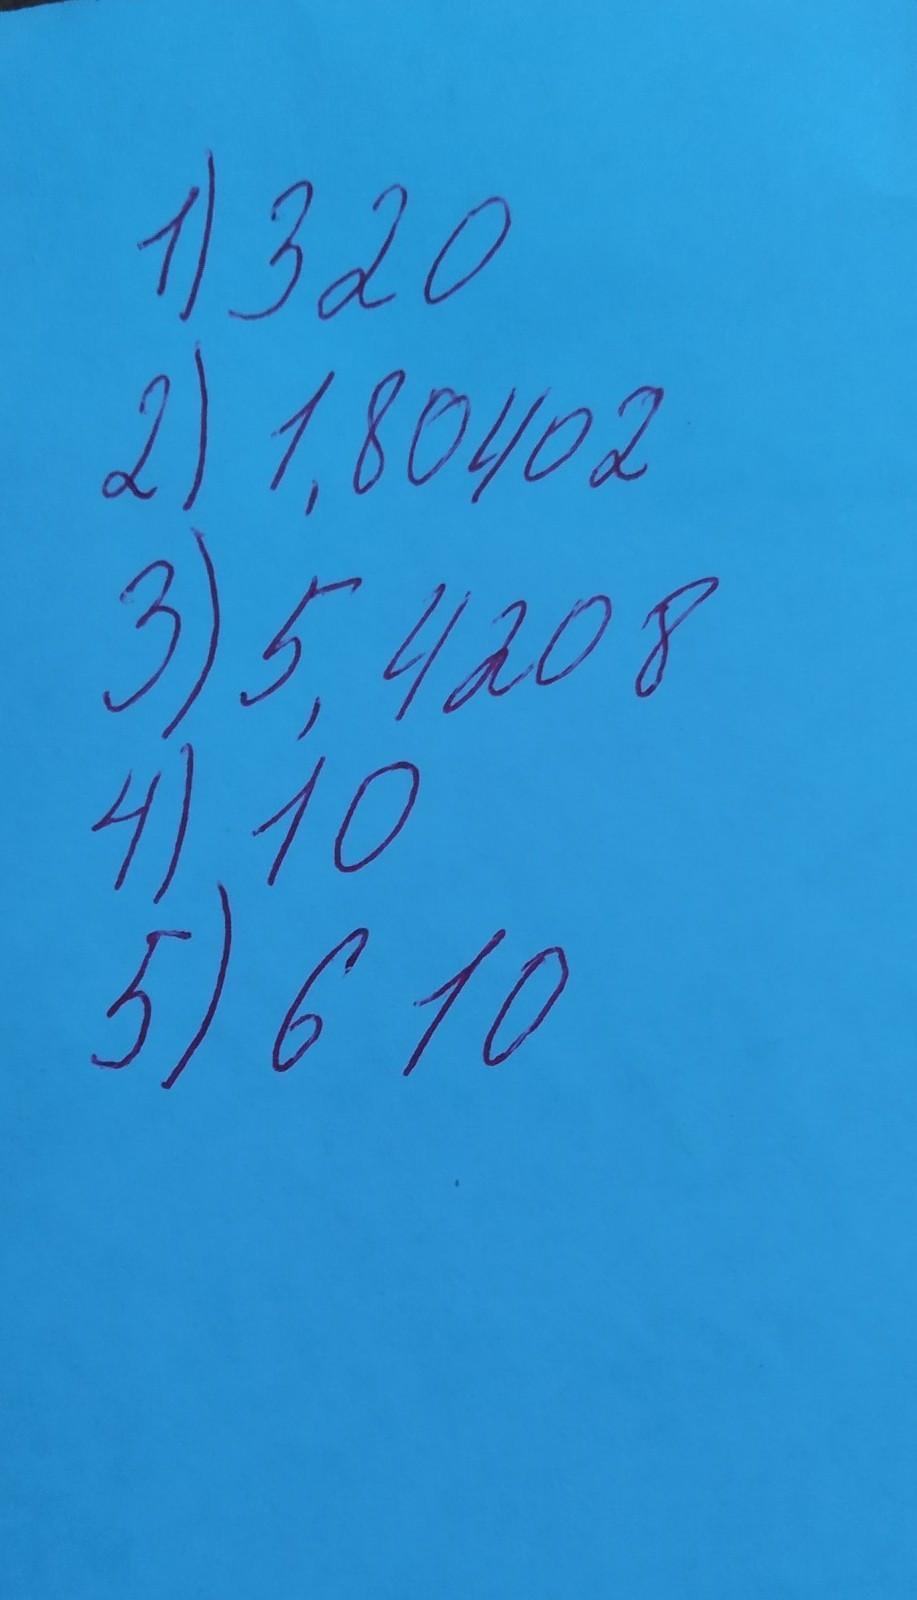 1) 320
2) 1,80402
3) 5,4208
4) 10
5) 610